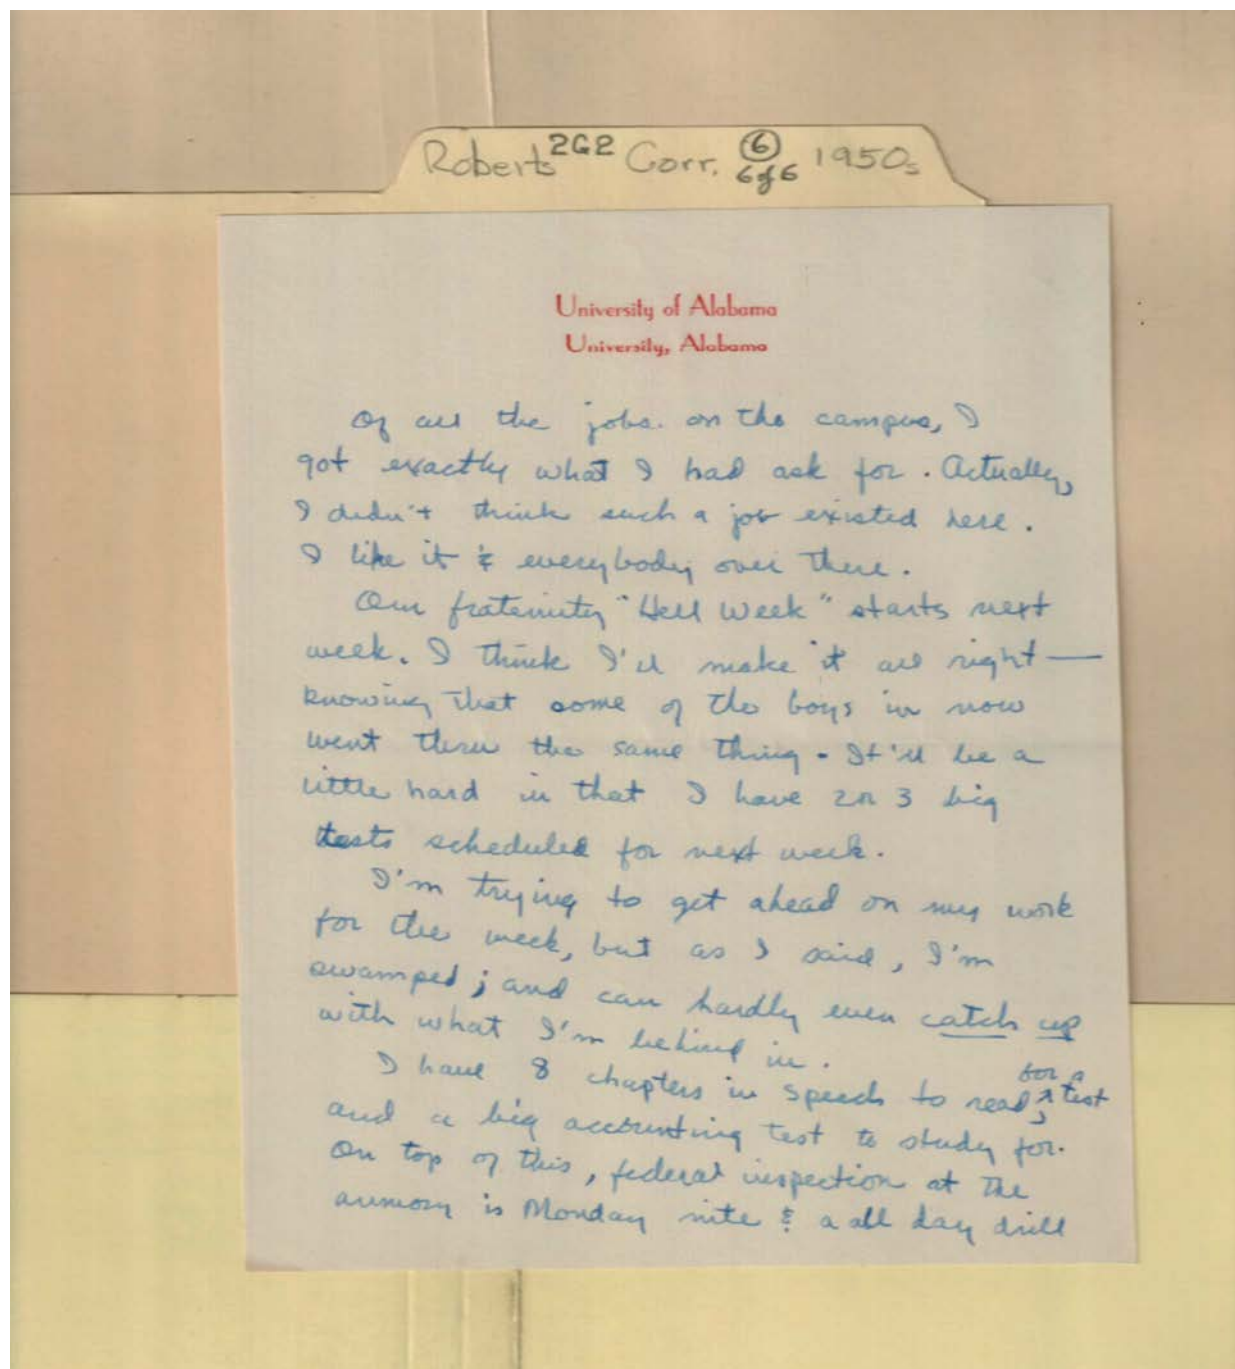 Roberts 2G2 Corr. 6 1950s
6 of 6
University of Alabama
University, Alabama
Of all the jobs on the campus, I
got exactly what I had ask for. Actually,
I didn't think such a job existed here.
I like it & everybody over there.
Our fraternity "Hell Week" starts next
week. I think I'll make it all right—
knowing that some of the boys in now
went thru the same thing. It'll be a
little hard in that I have 2 or 3 big
tests scheduled for next week.
I'm trying to get ahead on my work
for the week, but as I said, I'm
swamped; and can hardly even catch up
with what I'm behind in.
I have 8 chapters in speech to read for a test,
and a big accounting test to study for.
On top of this, federal inspection at the
armory is Monday nite & a all day drill